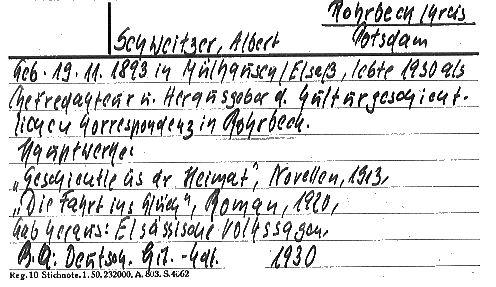 Rohrbeck/Kreis
Schweitzer, Albert Potsdam
Geb. 19.11.1893 in Mülhausen/Elsaß, lebte 1930 als
Chefredakteur u. Herausgeber d. Kulturgeschicht-
lichen Korrespondenz in Rohrbeck.
Hauptwerke:
„Geschichtle us dr Heimat", Novellen, 1913,
„Die Fahrt ins Glück", Roman, 1920,
Gab heraus: Elsässische Volkssagen,
B.Q. Deutsch. Lit.-Kal. 1930
Reg. 10 Stichnote. 1. 50. 232000. A. 803. S. 4662